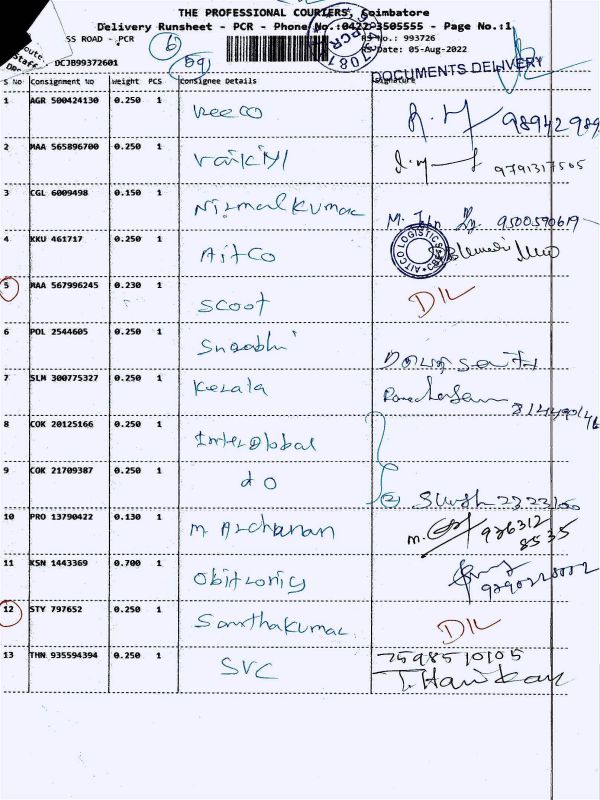 THE PROFESSIONAL COURIERS, Coimbatore
Delivery Runsheet - PCR - Phone No.:0422-3505555 - Page No.:1
SS ROAD - PCR
6
No.: 993726
Date: 05-Aug-2022
DCJB99372601
59
DOCUMENTS DELIVERY
S No Consignment No Weight PCS Consignee Details Signature
1 AGR 500424130 0.250 1 Veeco
2 MAA 565896700 0.250 1 9791317505
3 CGL 6009498 0.150 1 Nirmal Kumar 9500590619
4 KKU 461717 0.250 1 AitCo
AITCO LOGISTICS
5 MAA 567996245 0.230 1 Scoot DIL
6 POL 2544605 0.250 1 Surabhi
7 SLM 300775327 0.250 1 Kerala
8 COK 20125166 0.250 1 InterGlobal
9 COK 21709387 0.250 1 do
10 PRO 13790422 0.130 1 M. Archanan 936312 8535
11 KSN 1443369 0.700 1
12 STY 797652 0.250 1 Santhakumar DIL
13 THN 935594394 0.250 1 SVC 7598510105